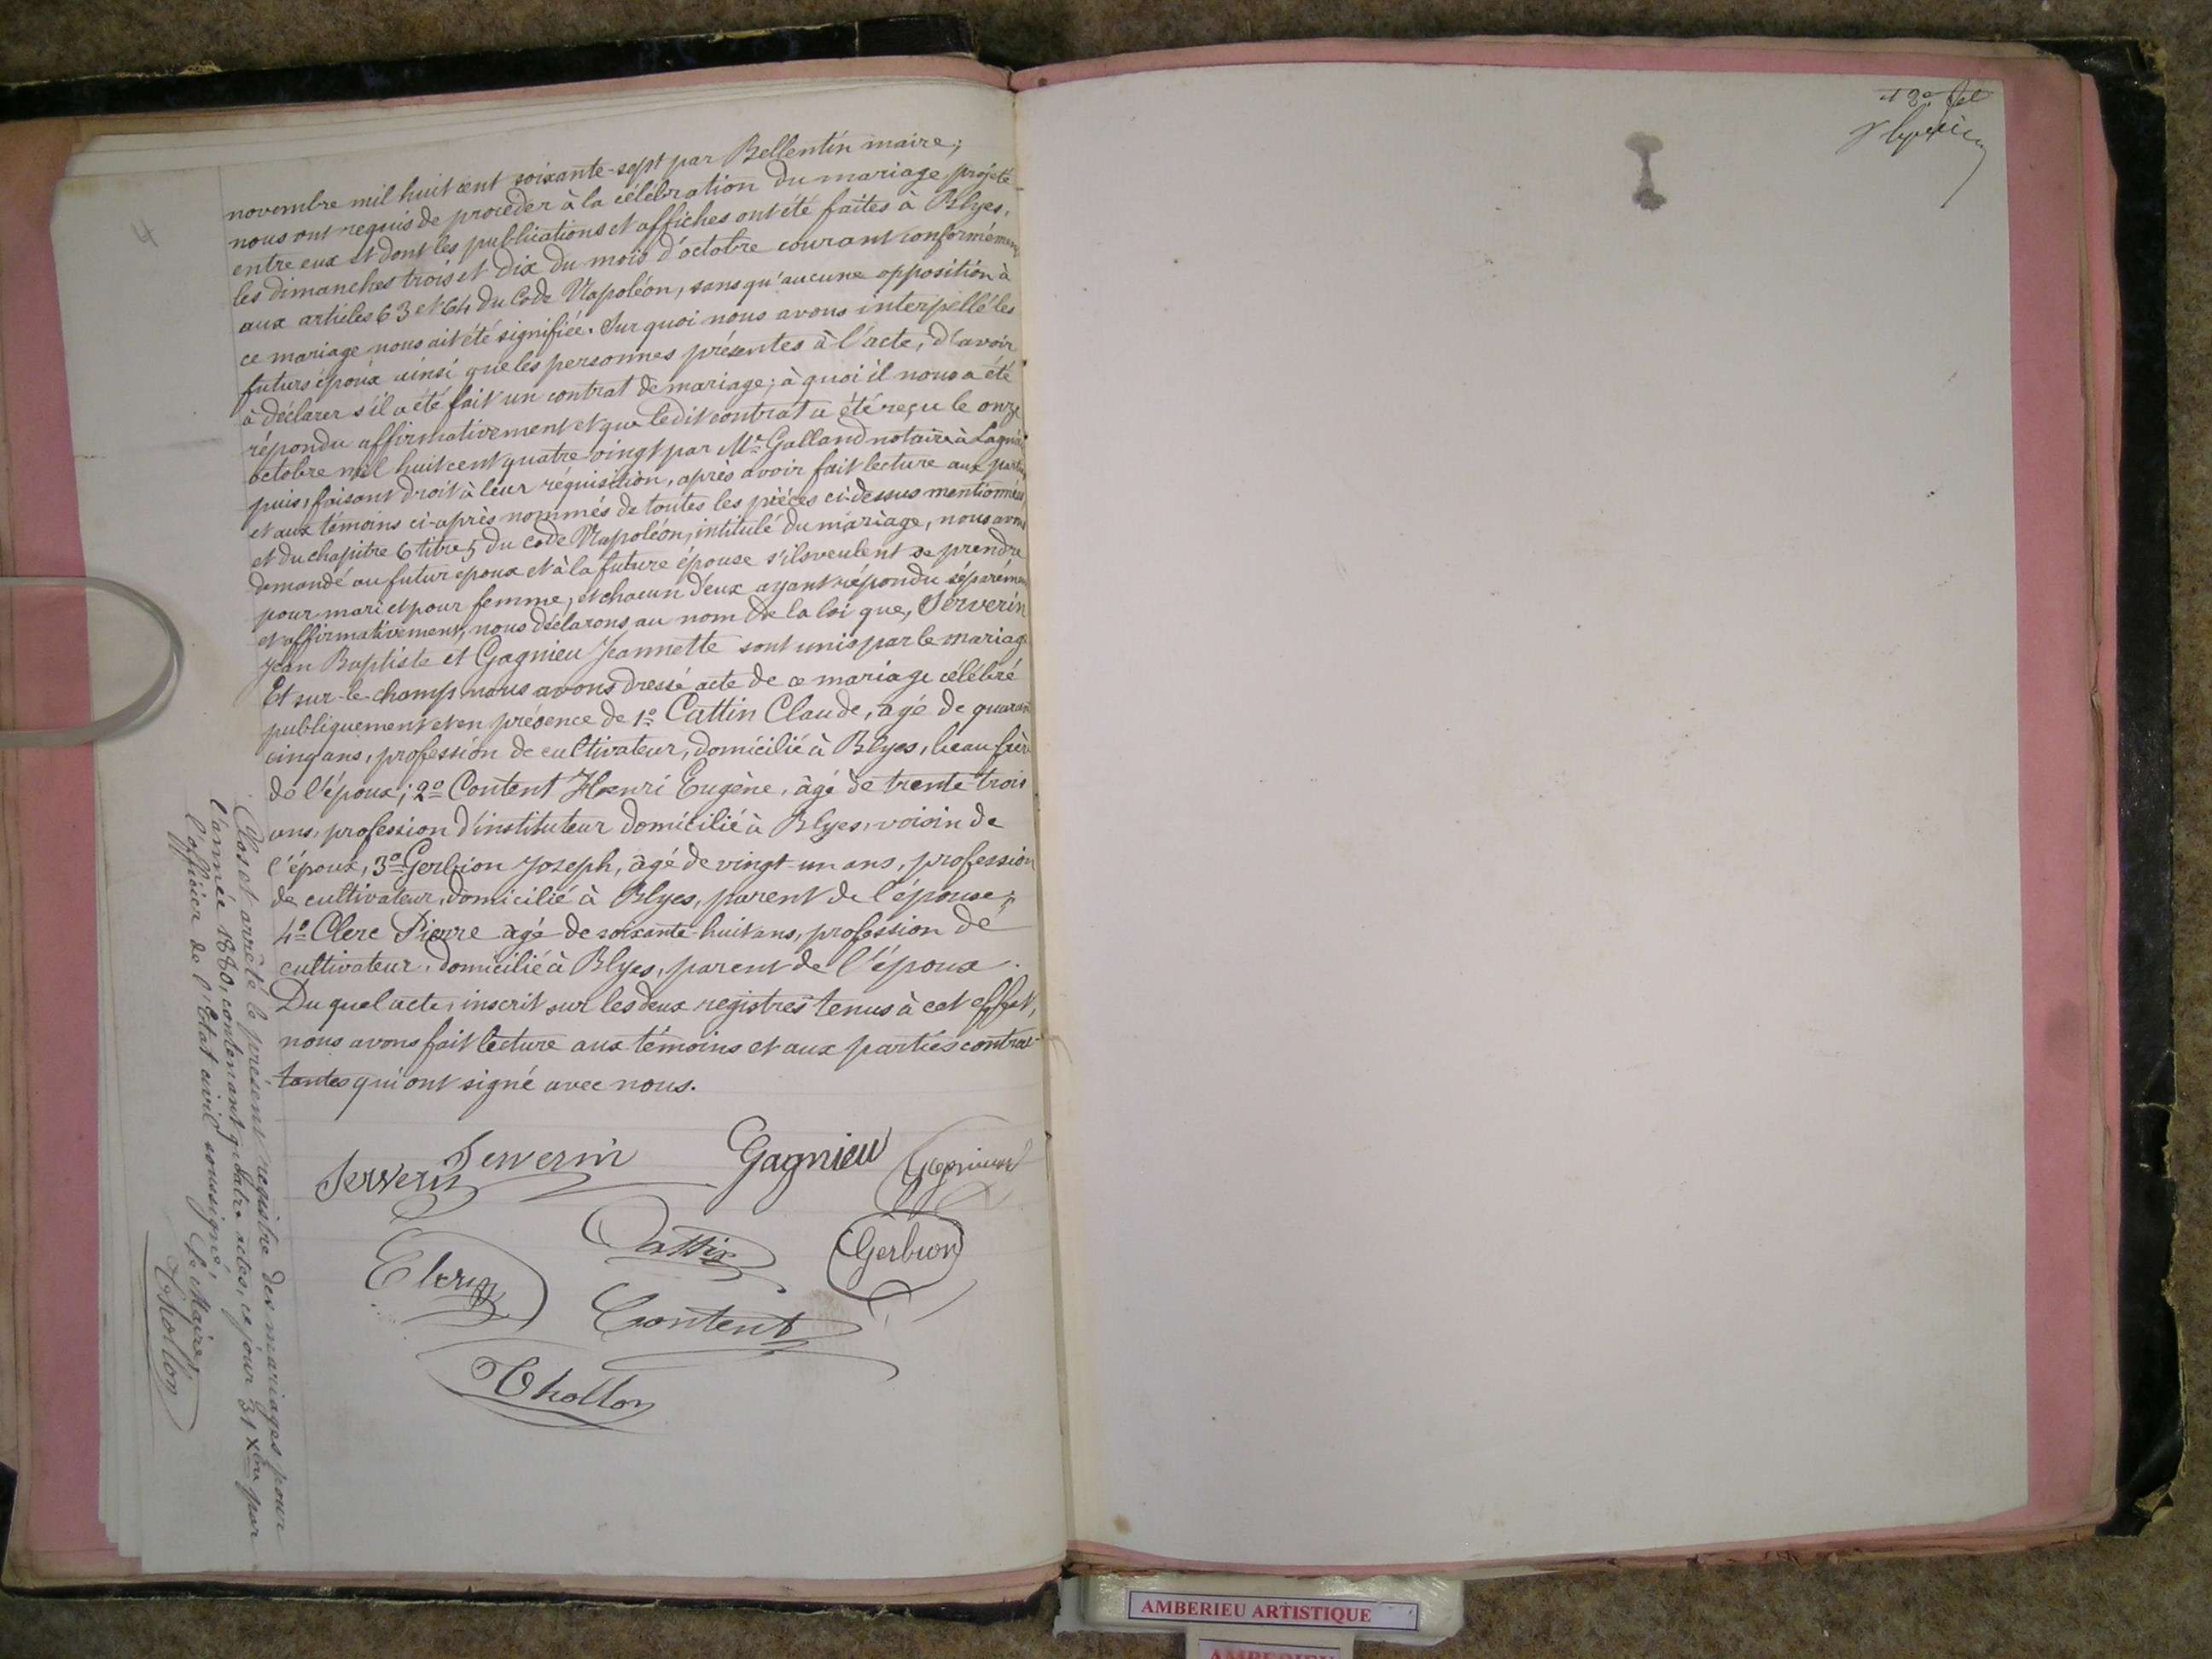 novembre mil huit cent soixante-sept par Bellentin maire;
nous ont requis de procéder à la célébration du mariage projeté
entre eux et dont les publications et affiches ont été faites à Blyes,
les dimanches trois et dix du mois d'octobre courant conformément
aux articles 63 et 64 du Code Napoléon, sans qu'aucune opposition à
ce mariage nous ait été signifiée. Sur quoi nous avons interpellé les
futurs époux ainsi que les personnes présentes à l'acte, d'avoir
à déclarer s'il a été fait un contrat de mariage; à quoi il nous a été
répondu affirmativement et que ledit contrat a été reçu le onze
octobre mil huit cent quatre vingt par Me Galland notaire à Lagnieu
puis, faisant droit à leur réquisition, après avoir fait lecture aux parties
et aux témoins ci-après nommés de toutes les pièces ci-dessus mentionnées
et du chapitre 6 titre 5 du Code Napoléon, intitulé du mariage, nous avons
demandé au futur époux et à la future épouse s'ils veulent se prendre
pour mari et pour femme, et chacun d'eux ayant répondu séparément
et affirmativement, nous déclarons au nom de la loi que, Serverin
Jean Baptiste et Gagnieu Jeannette sont unis par le mariage
Et sur-le-champ nous avons dressé acte de ce mariage célébré
publiquement et en présence de 1o Cattin Claude, âgé de quarante
cinq ans, profession de cultivateur, domicilié à Blyes, beau frère
de l'époux; 2o Content Henri Eugène, âgé de trente trois
ans, profession d'instituteur domicilié à Blyes, voisin de
l'époux, 3o Gerbion Joseph, âgé de vingt-un ans, profession
de cultivateur, domicilié à Blyes, parent de l'épouse;
4o Clerc Pierre âgé de soixante-huit ans, profession de
cultivateur, domicilié à Blyes, parent de l'époux.
Du quel acte, inscrit sur les deux registres tenus à cet effet,
nous avons fait lecture aux témoins et aux parties contrac-
tantes qui ont signé avec nous.
Serverin Serverin Gagnieu Gagnieu
Cattin Gerbion
Content
Chollon
Clos et arrêté le présent registre des mariages pour
l'année 1880, contenant quatre actes, ce jour 31 Xbre par
l'officier de l'Etat civil soussigné,
Le Maire,
Chollon
4
AMBERIEU ARTISTIQUE
AMBERIEU